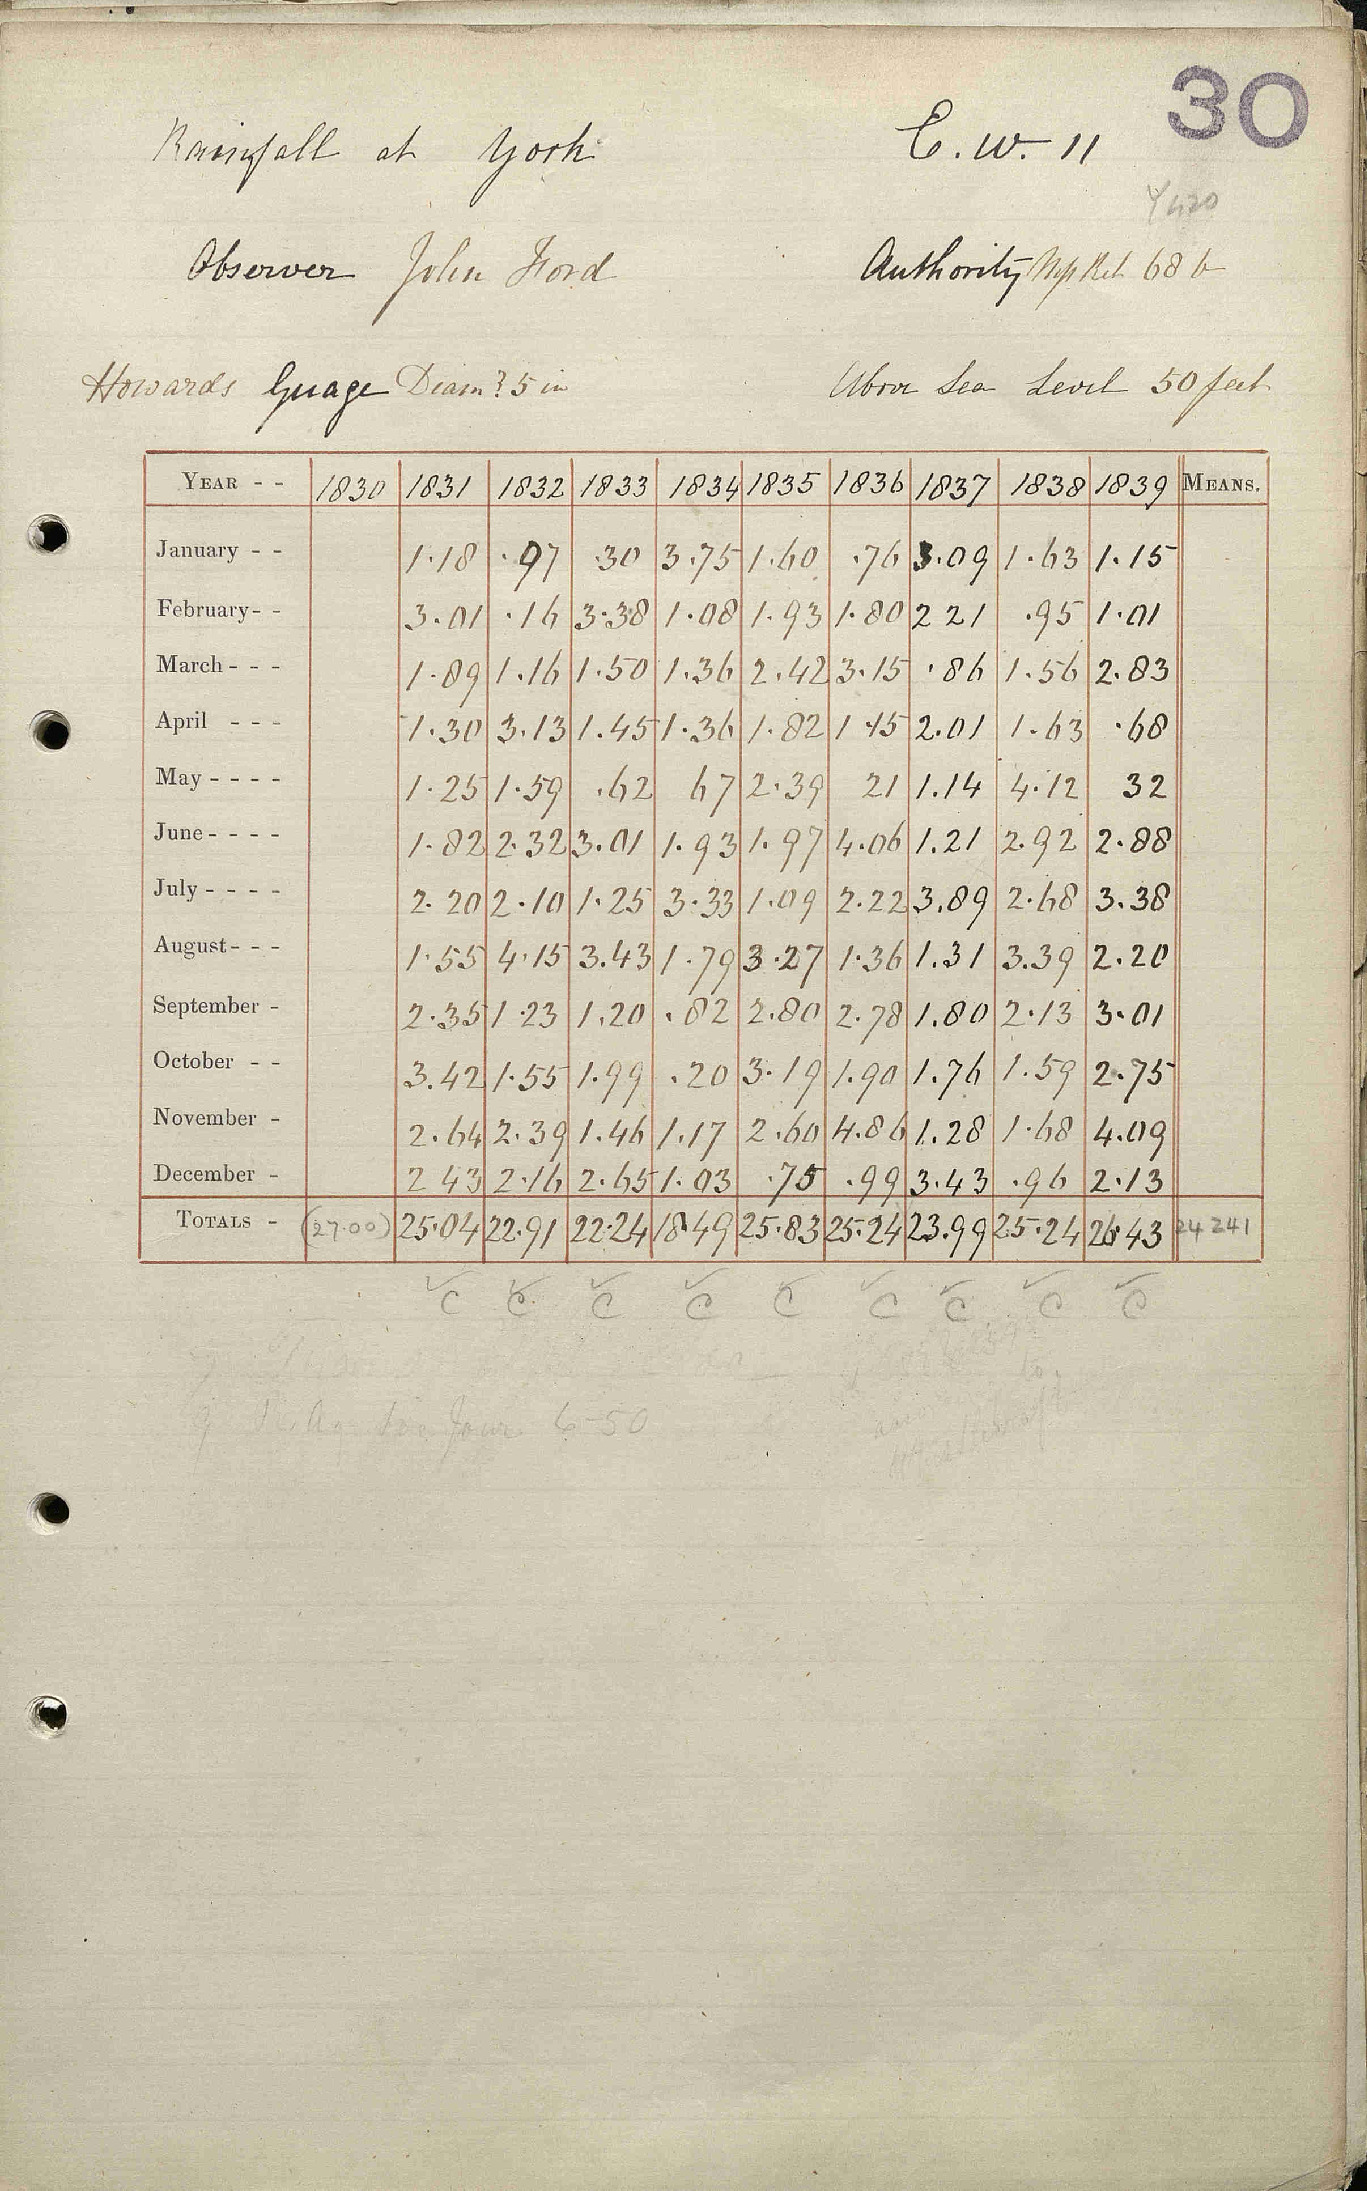 30
Rainfall at York C. W. 11
Observer John Ford Authority 68 b
Howards Guage Diam? 5 in Above Sea Level 50 feet
YEAR - - 1830 1831 1832 1833 1834 1835 1836 1837 1838 1839 MEANS.
January - - 1.18 .97 .30 3.75 1.60 .76 3.09 1.63 1.15
February - - 3.01 .16 3.38 1.08 1.93 1.80 2 21 .95 1.01
March - - - 1.89 1.16 1.50 1.36 2.42 3.15 .86 1.56 2.83
April - - - 1.30 3.13 1.45 1.36 1.82 1.15 2.01 1.63 .68
May - - - - 1.25 1.59 .62 67 2.39 21 1.14 4.12 32
June - - - - 1.82 2.32 3.01 1.93 1.97 4.06 1.21 2.92 2.88
July - - - - 2.20 2.10 1.25 3.33 1.09 2.22 3.89 2.68 3.38
August - - - 1.55 4.15 3.43 1.79 3.27 1.36 1.31 3.39 2.20
September - 2.35 1.23 1.20 .82 2.80 2.78 1.80 2.13 3.01
October - - 3.42 1.55 1.99 .20 3.19 1.90 1.76 1.59 2.75
November - 2.64 2.39 1.46 1.17 2.60 4.86 1.28 1.68 4.09
December - 2 43 2.16 2.65 1.03 .75 .99 3.43 .96 2.13
TOTALS - (27.00) 25.04 22.91 22.24 18.49 25.83 25.24 23.99 25.24 26.43 24 241
C C C C C C C C C
R. Ag. Soc. Jour 6-50